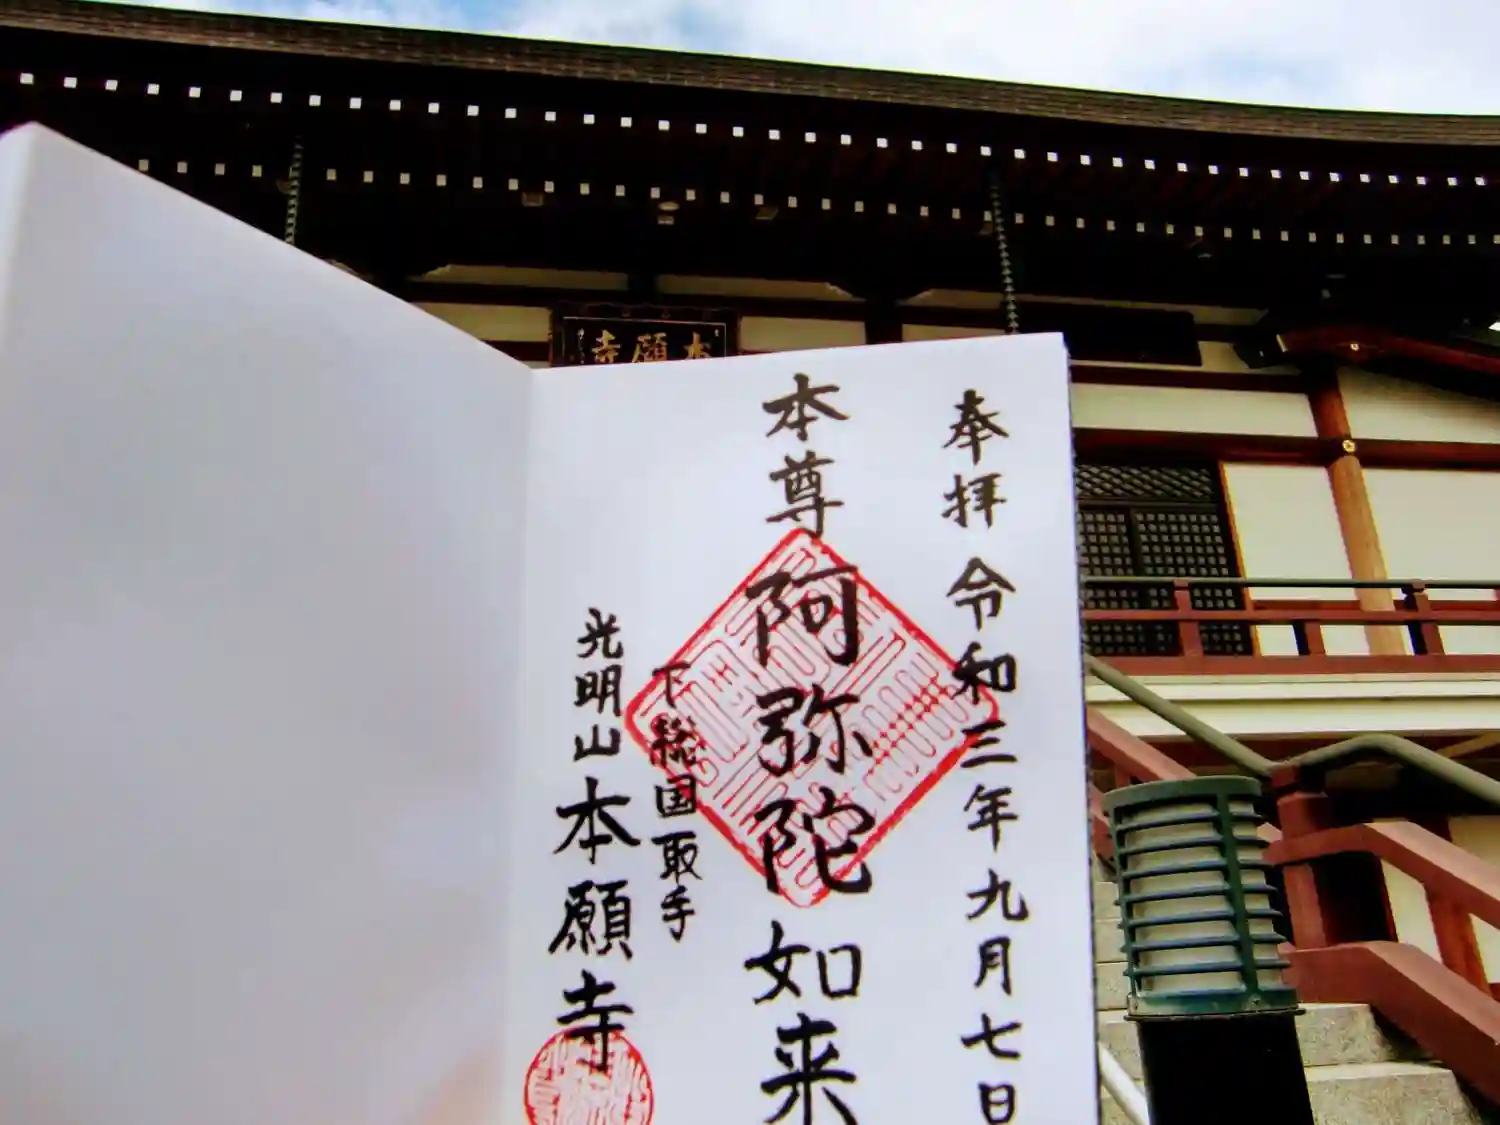 本願寺
奉拝 令和三年九月七日
本尊 阿弥陀如来
下総国取手
光明山 本願寺